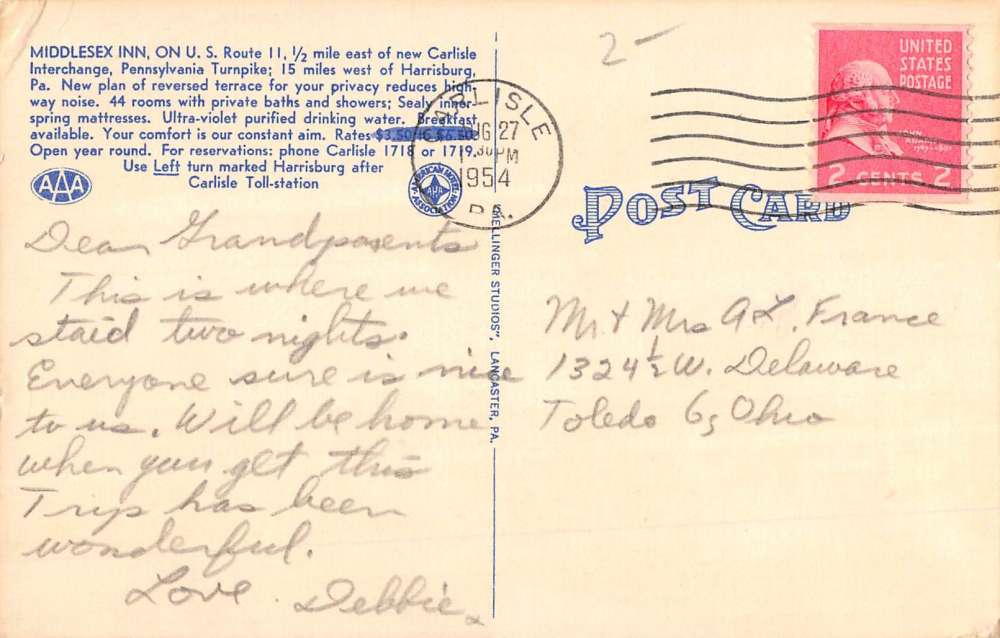 MIDDLESEX INN, ON U. S. Route 11, 1/2 mile east of new Carlisle
Interchange, Pennsylvania Turnpike; 15 miles west of Harrisburg,
Pa. New plan of reversed terrace for your privacy reduces high-
way noise. 44 rooms with private baths and showers; Sealy inner-
spring mattresses. Ultra-violet purified drinking water. Breakfast
available. Your comfort is our constant aim. Rates $3.50 to $6.50
Open year round. For reservations: phone Carlisle 1718 or 1719.
Use Left turn marked Harrisburg after
Carlisle Toll-station
AAA
AMERICAN MOTEL ASSOCIATION
Dear Grandparents
This is where we
staid two nights.
Everyone sure is nice
to us. Will be home
when you get this
Trip has been
wonderful.
Love Debbie
MELLINGER STUDIOS", LANCASTER, PA.
2-
CARLISLE
AUG 27
PM
1954
PA.
UNITED
STATES
POSTAGE
JOHN
ADAMS
2 CENTS 2
POST CARD
Mr + Mrs A L. France
1324 1/2 W. Delaware
Toledo 6, Ohio